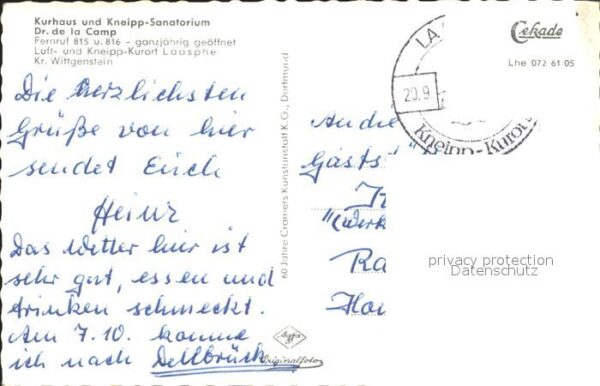 Kurhaus und Kneipp-Sanatorium
Dr. de la Camp
Fernruf 815 u. 816 - ganzjährig geöffnet
Luft- und Kneipp-Kurort Laasphe
Kr. Wittgenstein
Die herzlichsten
Grüße von hier
sendet Euch
Heinz
Das Wetter hier ist
sehr gut, essen und
trinken schmeckt.
Am 7.10. komme
ich nach Dellbrück
60 Jahre Cramers Kunstanstalt K.G., Dortmund
Agfa
Originalfotos
Cekade
Lhe 072 61 05
LA
20.9.
Kneipp-Kurort
An die
Gasts
"(Werk
Ra
Hou
privacy protection
Datenschutz